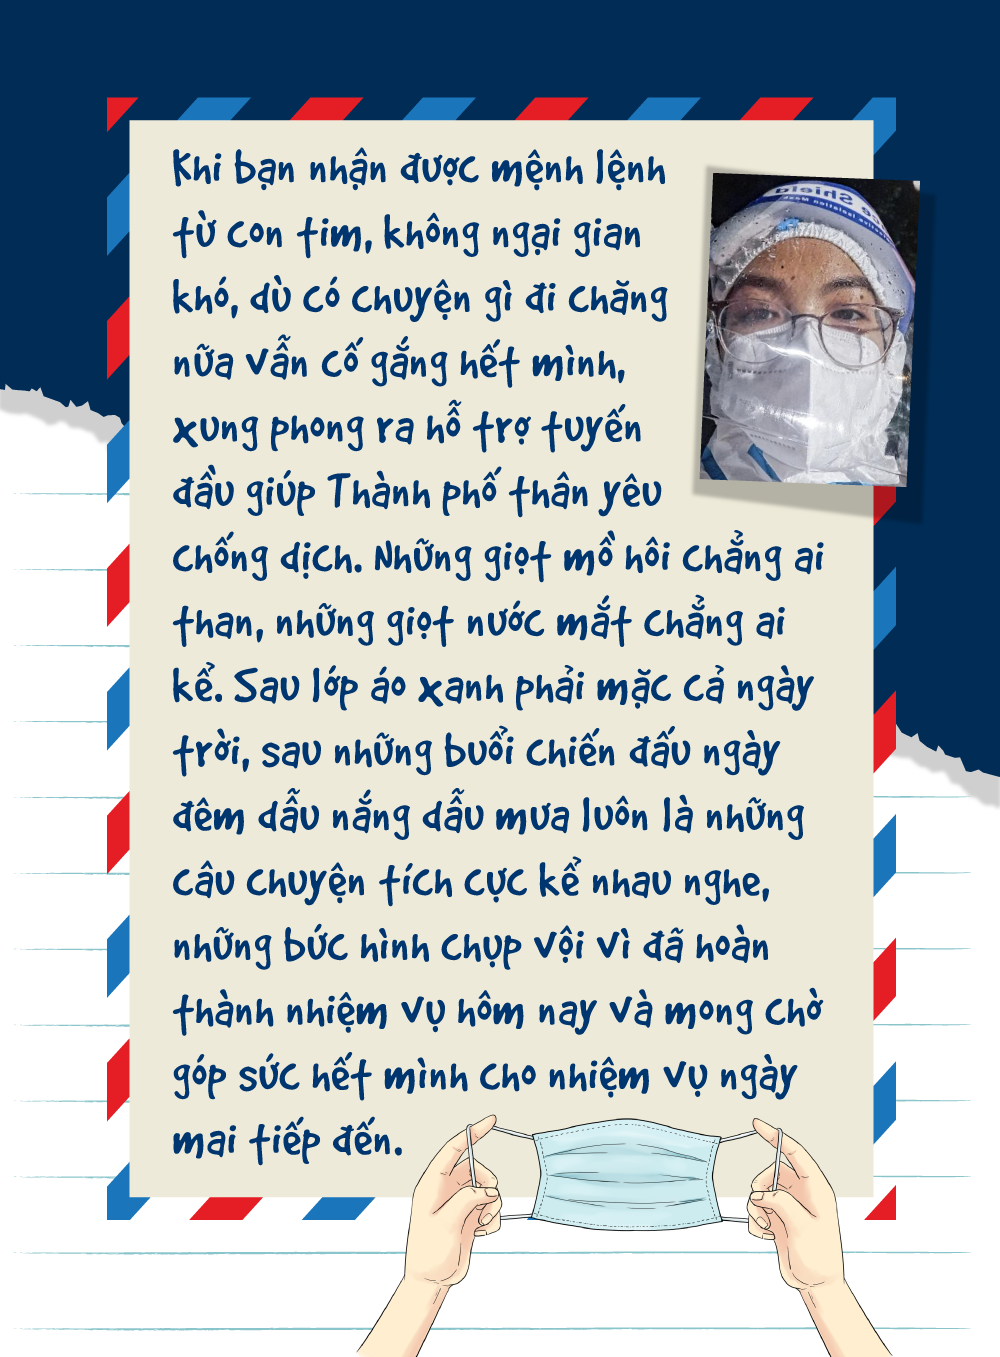 Khi bạn nhận được mệnh lệnh
từ con tim, không ngại gian
khó, dù có chuyện gì đi chăng
nữa vẫn cố gắng hết mình,
xung phong ra hỗ trợ tuyến
đầu giúp Thành phố thân yêu
chống dịch. Những giọt mồ hôi chẳng ai
than, những giọt nước mắt chẳng ai
kể. Sau lớp áo xanh phải mặc cả ngày
trời, sau những buổi chiến đấu ngày
đêm dẫu nắng dẫu mưa luôn là những
câu chuyện tích cực kể nhau nghe,
những bức hình chụp vội vì đã hoàn
thành nhiệm vụ hôm nay và mong chờ
góp sức hết mình cho nhiệm vụ ngày
mai tiếp đến.
Shield